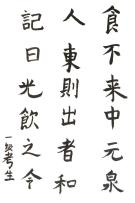 食不来中元泉
人東則出者和
記日光飲之令
一級考生